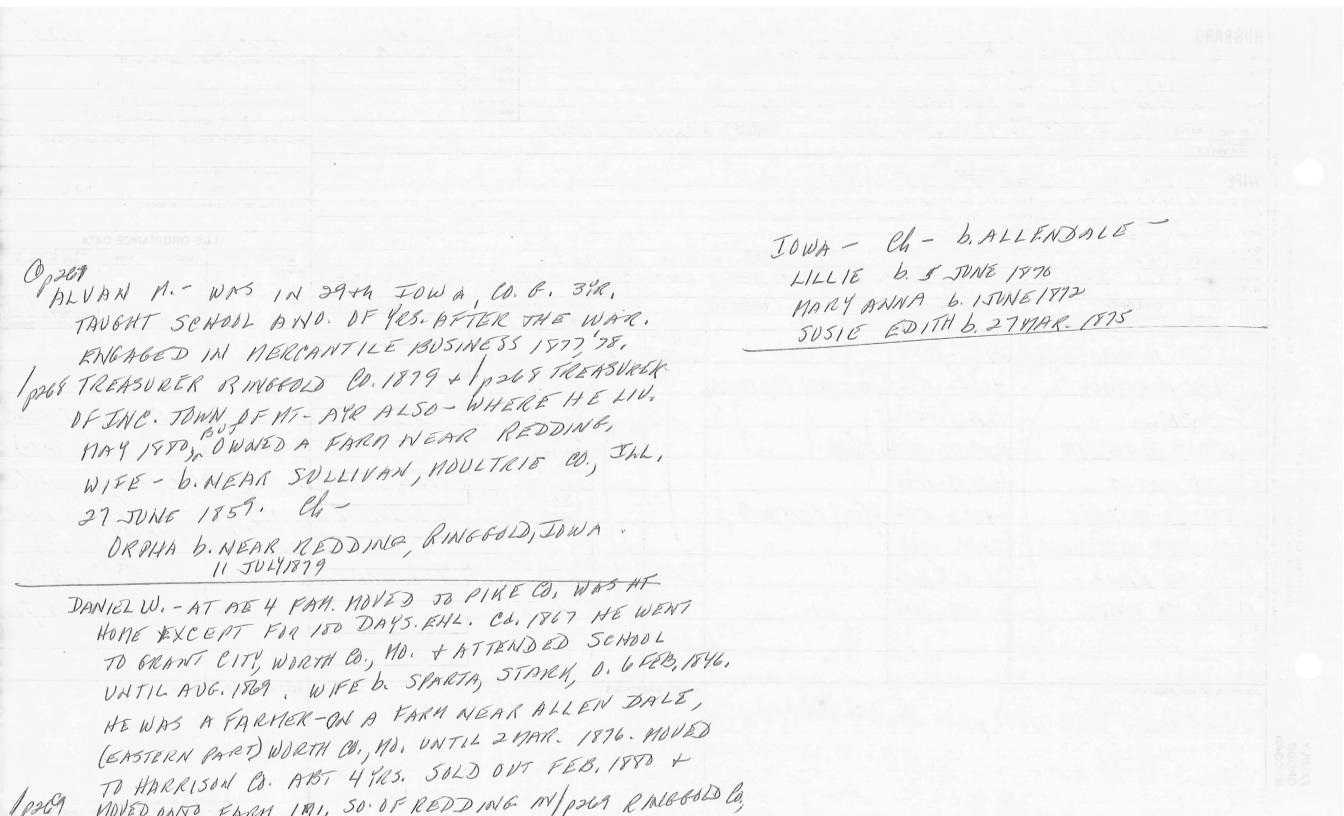 ① p267
ALVAN M.- WAS IN 29th IOWA, CO. G. 3YR.
TAUGHT SCHOOL A NO. OF YRS. AFTER THE WAR.
ENGAGED IN MERCANTILE BUSINESS 1877,'78.
/p268 TREASURER RINGGOLD CO. 1879 + /p268 TREASURER
OF INC. TOWN OF MT- AYR ALSO - WHERE HE LIV.
MAY 1880, BUT OWNED A FARM NEAR REDDING,
WIFE - b. NEAR SULLIVAN, MOULTRIE CO., ILL.
27 JUNE 1859. Ch -
ORPHA b. NEAR REDDING, RINGGOLD, IOWA.
11 JULY 1879
DANIEL W. - AT AE 4 FAM. MOVED TO PIKE CO. WAS AT
HOME EXCEPT FOR 100 DAYS. ENL. CA. 1867 HE WENT
TO GRANT CITY, WORTH CO., MO. + ATTENDED SCHOOL
UNTIL AUG. 1869. WIFE b. SPARTA, STARK, O. 6 FEB. 1846.
HE WAS A FARMER-ON A FARM NEAR ALLEN DALE,
(EASTERN PART) WORTH CO., MO. UNTIL 2 MAR. 1876. MOVED
TO HARRISON CO. ABT 4 YRS. SOLD OUT FEB. 1880 +
/p269 MOVED ONTO FARM 1 MI. SO. OF REDDING IN /p269 RINGGOLD CO,
IOWA - Ch - b. ALLENDALE -
LILLIE b. 5 JUNE 1870
MARY ANNA b. 1 JUNE 1872
SUSIE EDITH b. 27 MAR. 1875